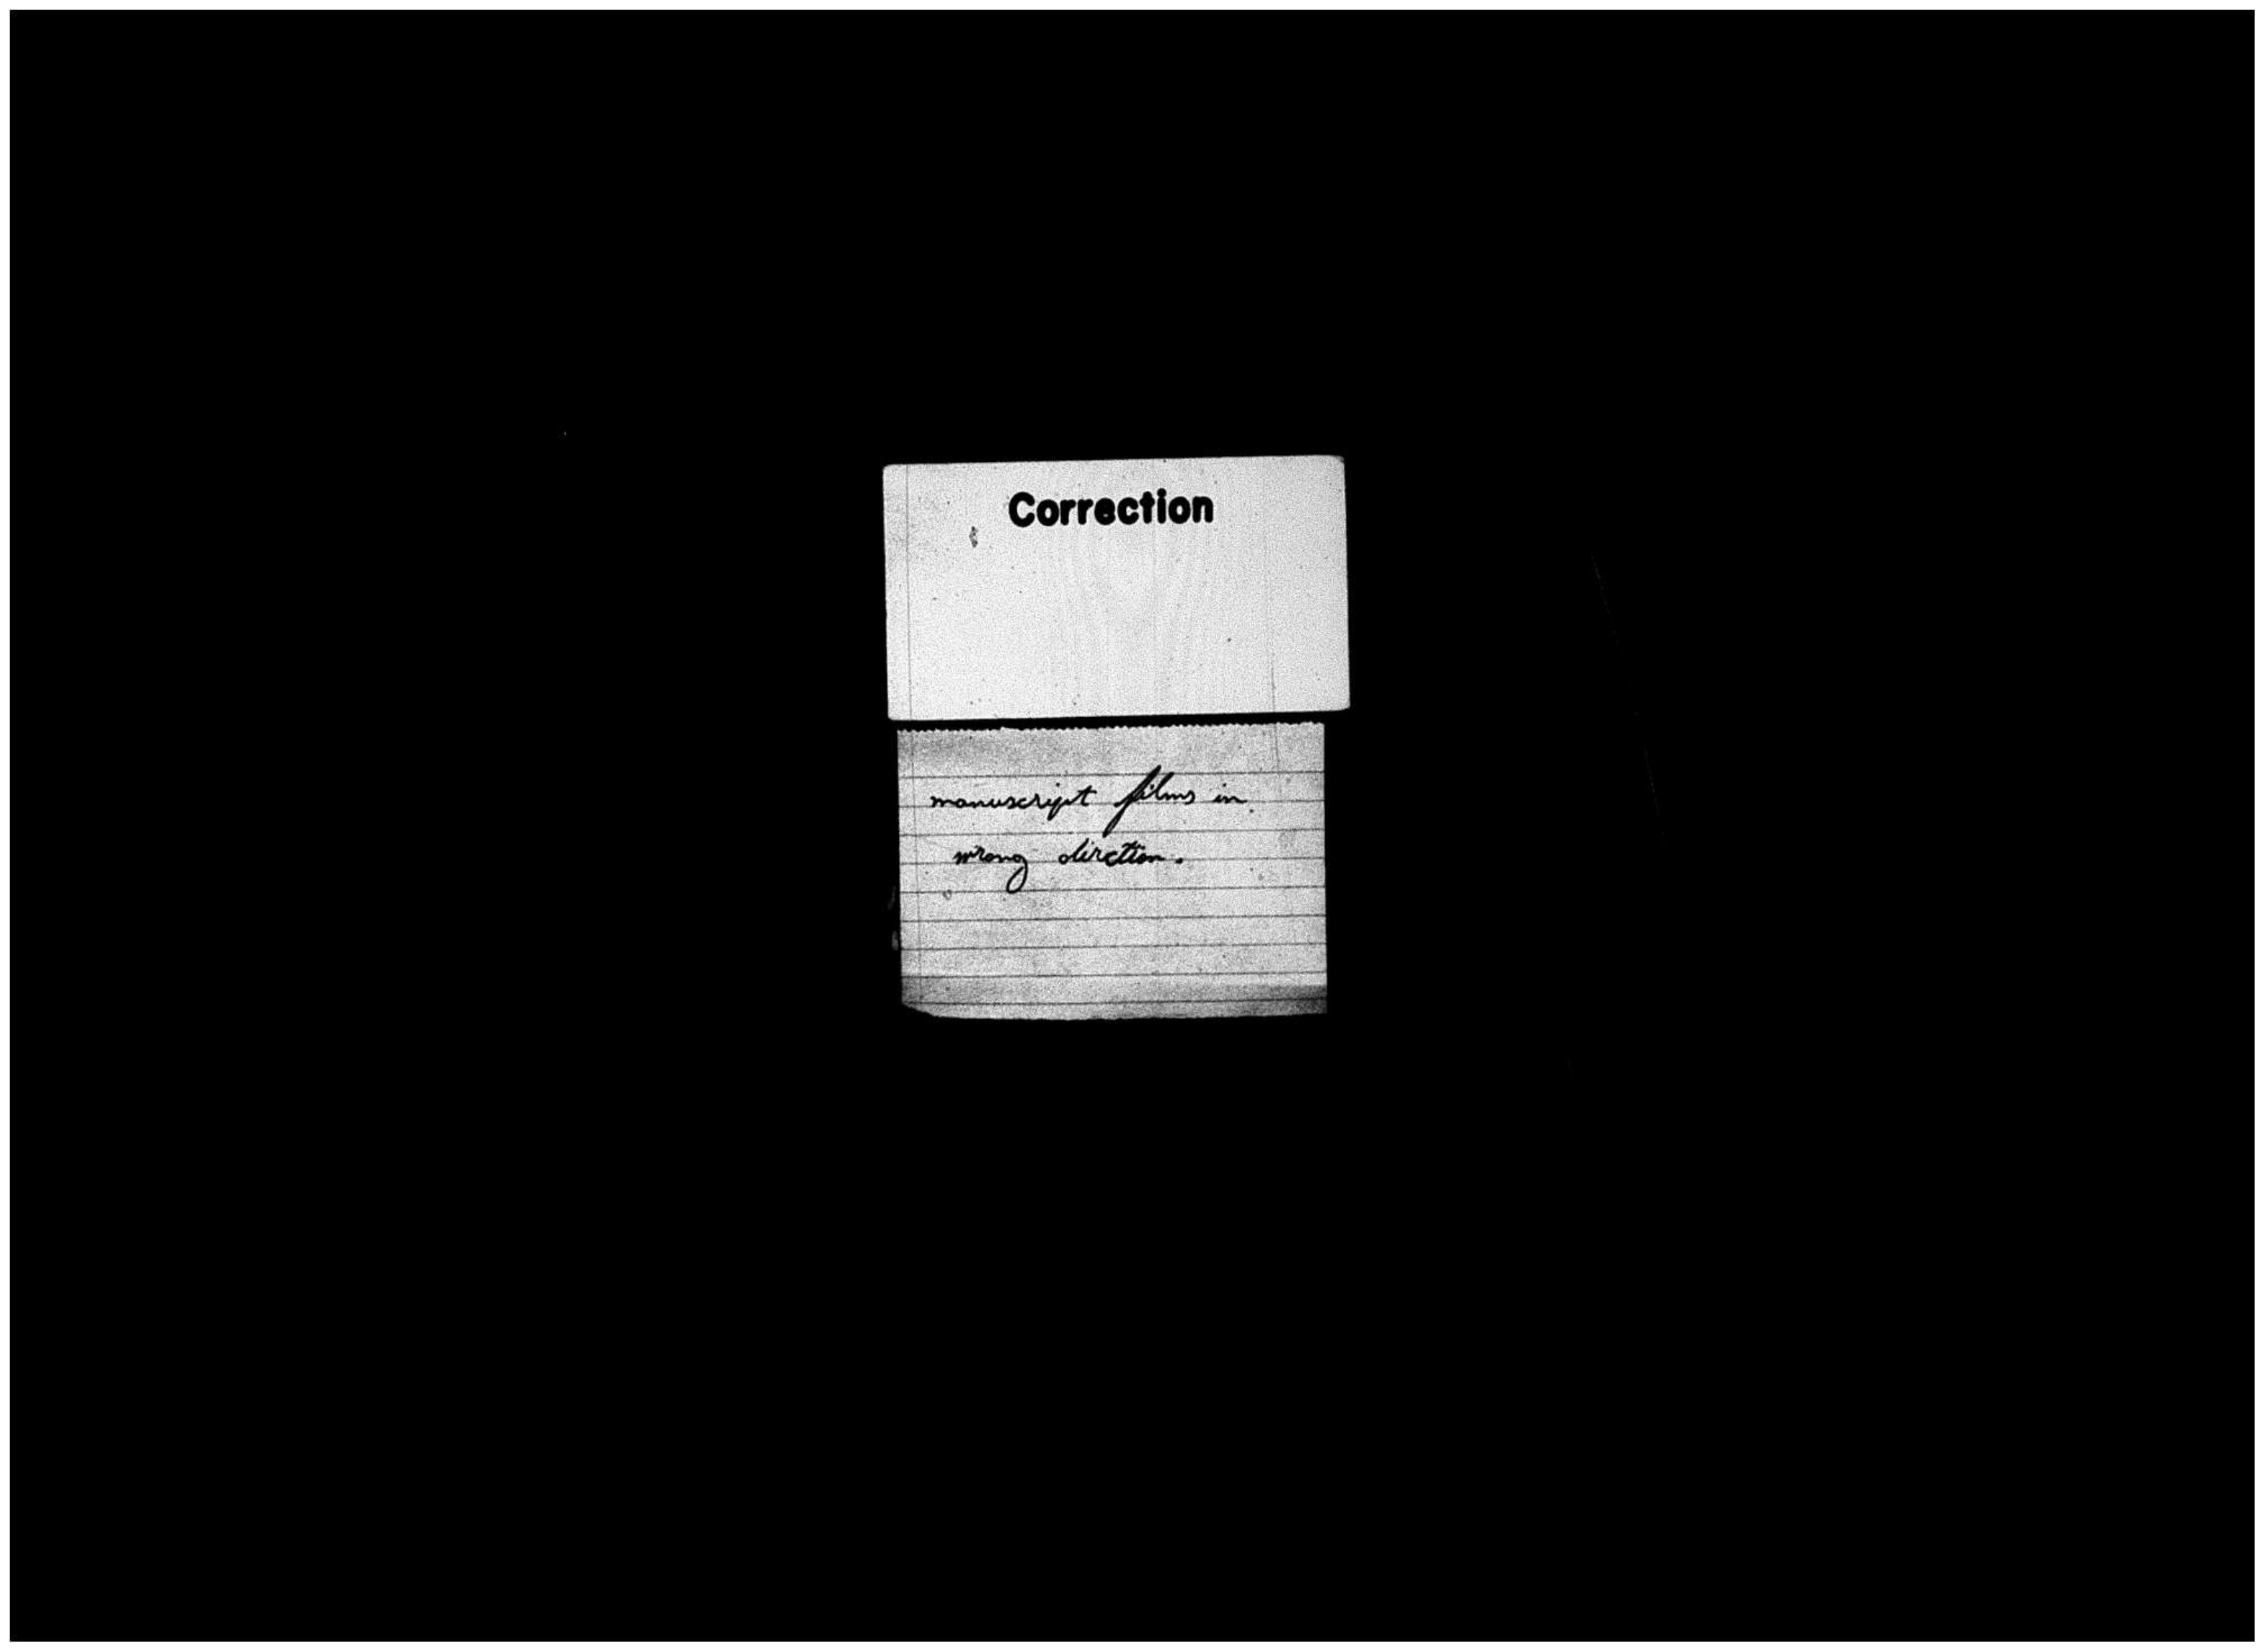 Correction
manuscript films in
wrong dirction.